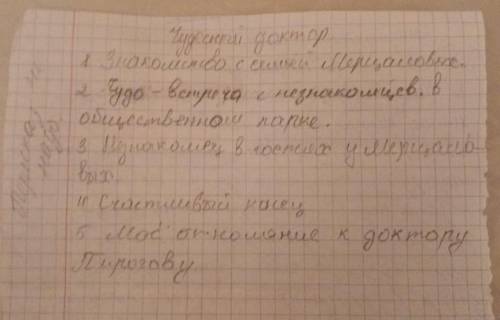 Чудесный доктор.
1 Знакомство с семьёй Мерцаловых.
2 Чудо - встреча с незнакомцев. в
общественном парке.
3 Незнакомец в гостях у Мерцало-
вых.
4 Счастливый конец
5 Моё отномяние к доктору
Пирогову